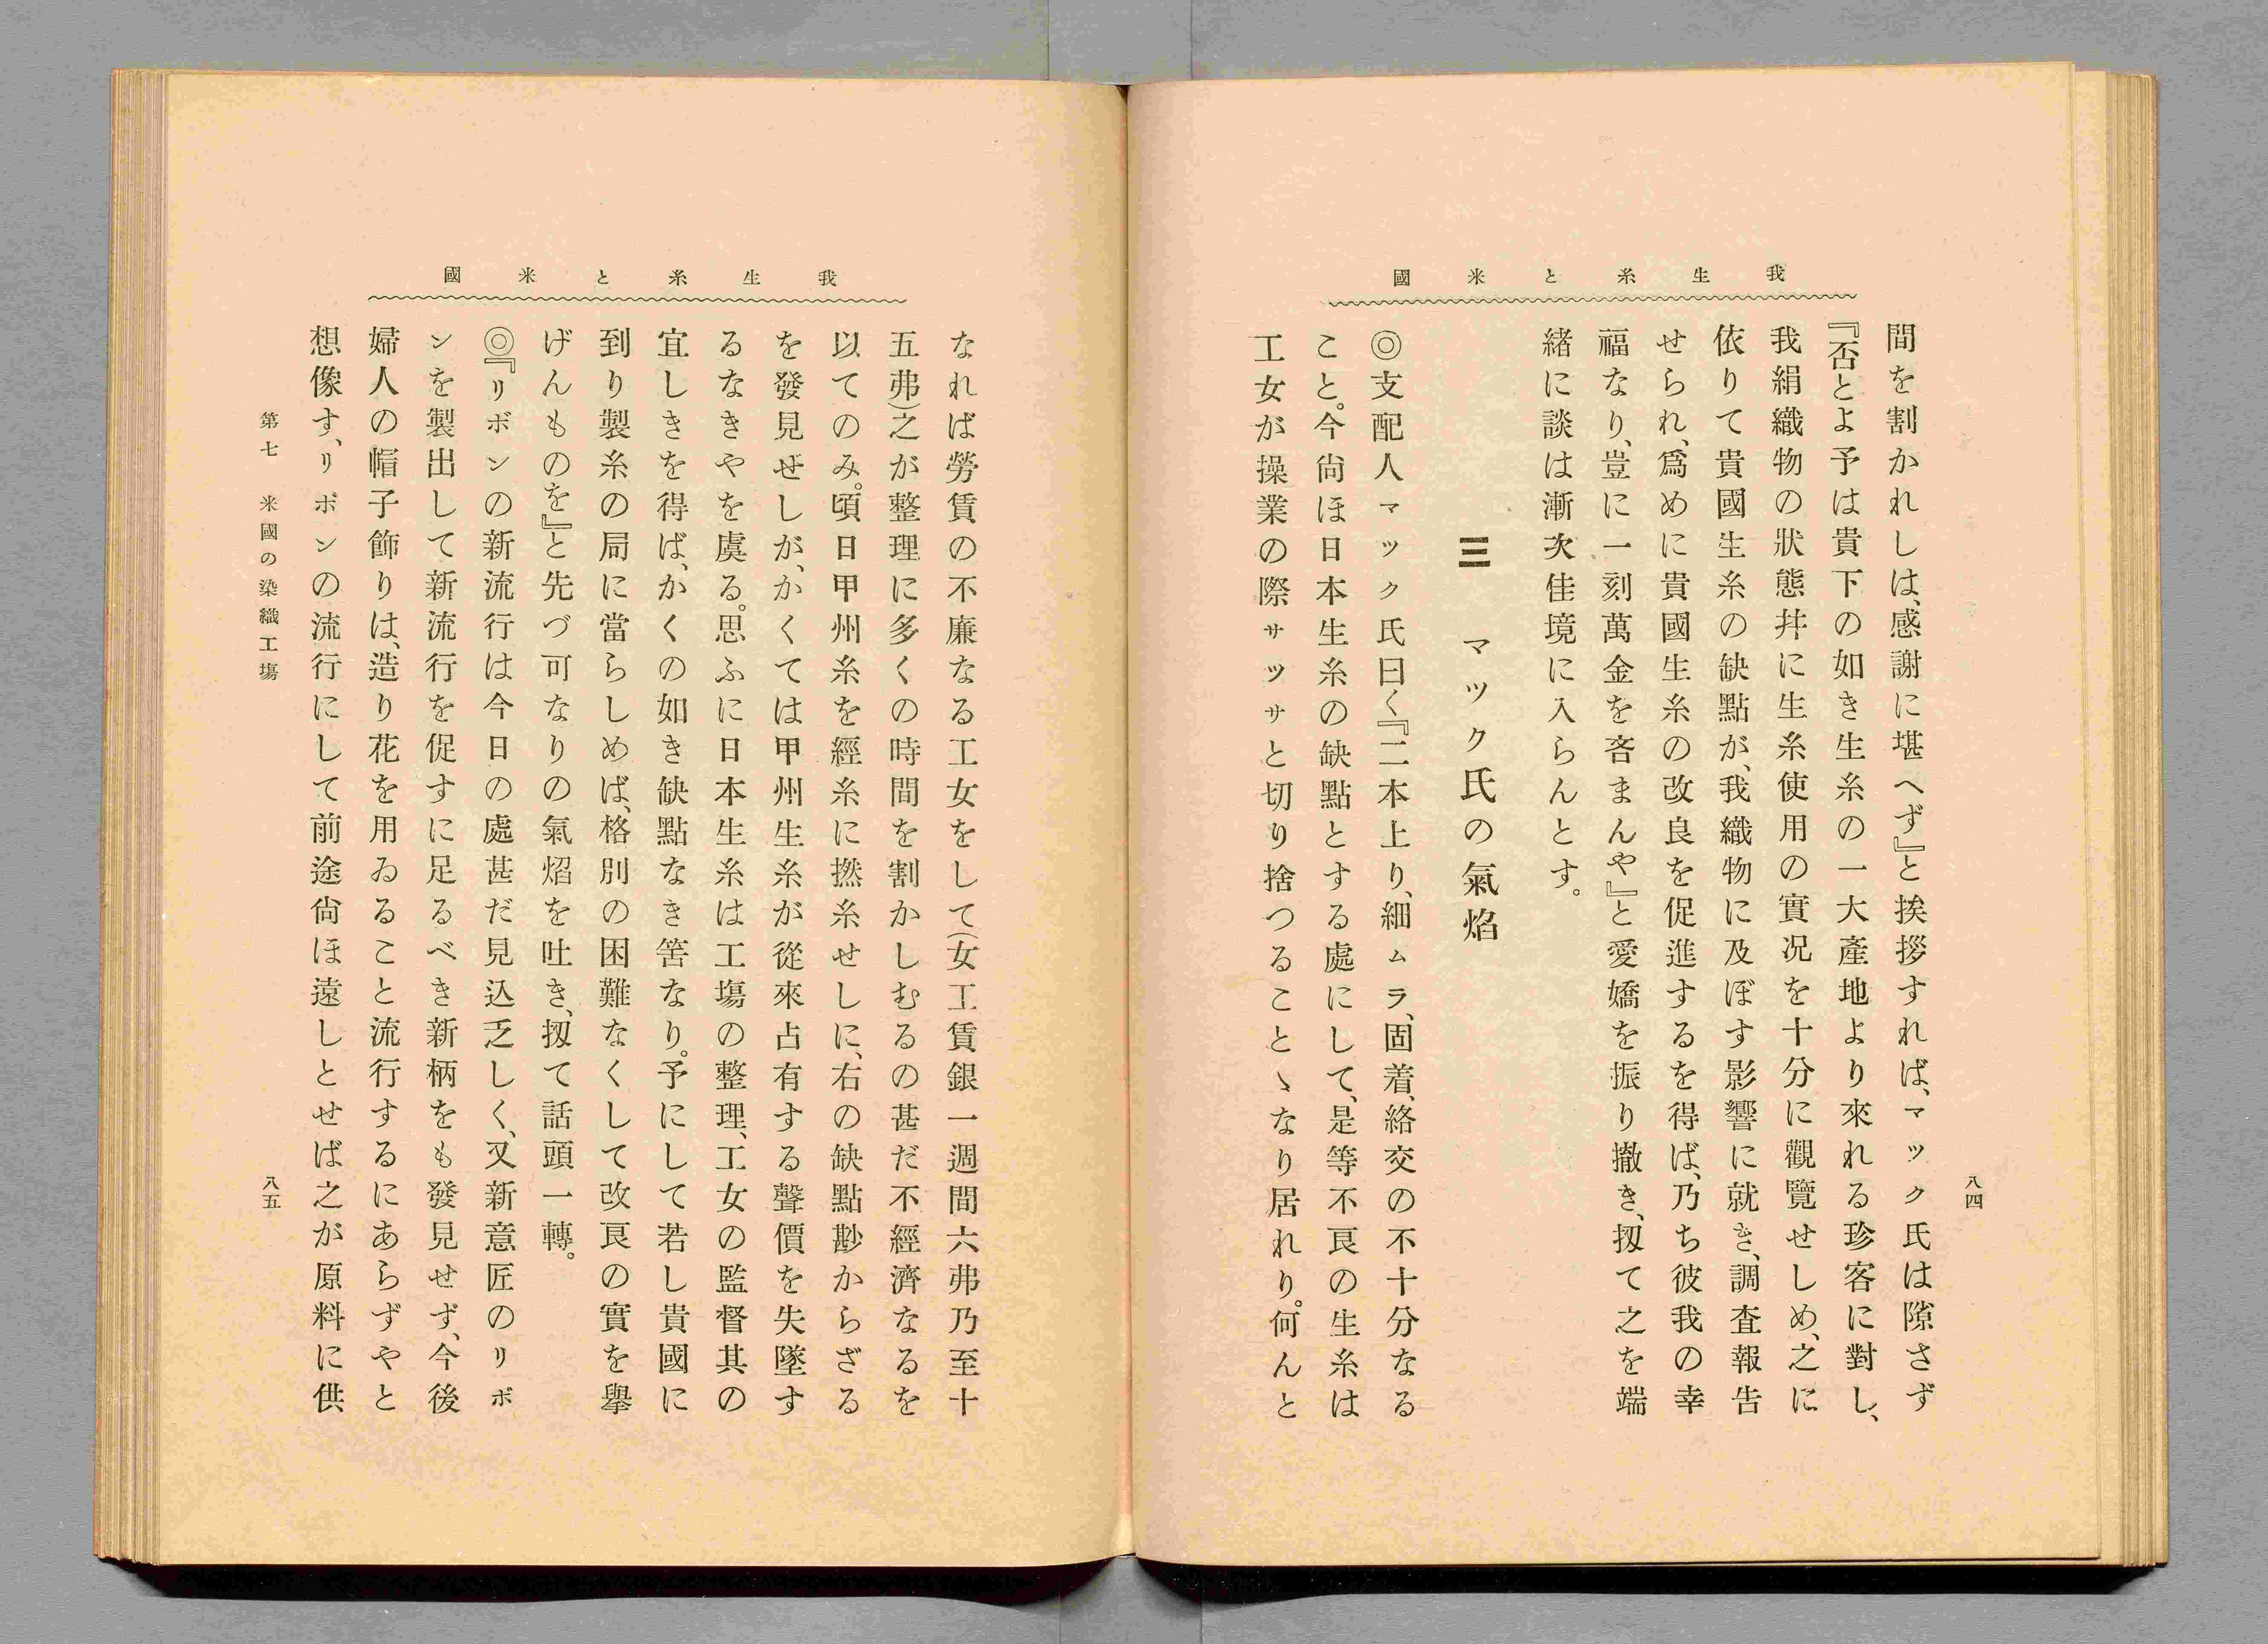 我生糸と米國
八四
間を割かれしは、感謝に堪へず』と挨拶すれば、マック氏は隙さず
『否とよ予は貴下の如き生糸の一大產地より來れる珍客に對し、
我絹織物の狀態幷に生糸使用の實況を十分に觀覽せしめ、之に
依りて貴國生糸の缺點が、我織物に及ぼす影響に就き、調査報告
せられ、爲めに貴國生糸の改良を促進するを得ば、乃ち彼我の幸
福なり、豈に一刻萬金を吝まんや』と愛嬌を振り撤き、扨て之を端
緒に談は漸次佳境に入らんとす。
三 マック氏の氣焰
◎支配人マック氏曰く『二本上り、細ムラ、固着、絡交の不十分なる
こと。今尙ほ日本生糸の缺點とする處にして、是等不良の生糸は
工女が操業の際サッサと切り捨つることゝなり居れり。何んと
我生糸と米國
なれば勞賃の不廉なる工女をして(女工賃銀一週間六弗乃至十
五弗)之が整理に多くの時間を割かしむるの甚だ不經濟なるを
以てのみ。頃日甲州糸を經糸に撚糸せしに、右の缺點尠からざる
を發見せしが、かくては甲州生糸が從來占有する聲價を失墜す
るなきやを虞る。思ふに日本生糸は工塲の整理、工女の監督其の
宜しきを得ば、かくの如き缺點なき筈なり。予にして若し貴國に
到り製糸の局に當らしめば、格別の困難なくして改良の實を擧
げんものを』と先づ可なりの氣焰を吐き、扨て話頭一轉。
◎『リボンの新流行は今日の處甚だ見込乏しく、又新意匠のリボ
ンを製出して新流行を促すに足るべき新柄をも發見せず、今後
婦人の帽子飾りは、造り花を用ゐること流行するにあらずやと
想像す、リボンの流行にして前途尙ほ遠しとせば之が原料に供
第七 米國の染織工塲
八五